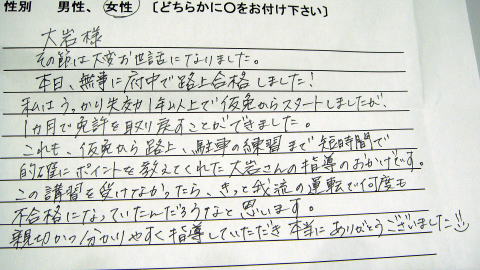 性別 男性、女性 〔どちらかに○をお付け下さい〕
大岩様
その節は大変お世話になりました。
本日、無事に府中で路上合格しました!
私はうっかり失効1年以上で仮免からスタートしましたが、
1カ月で免許を取り戻すことができました。
これも、仮免から路上、駐車の練習まで短時間で
的確にポイントを教えてくれた大岩さんの指導のおかげです。
この講習を受けなかったら、きっと我流の運転で何度も
不合格になっていたんだろうなと思います。
親切かつ分かりやすく指導していただき本当にありがとうございました